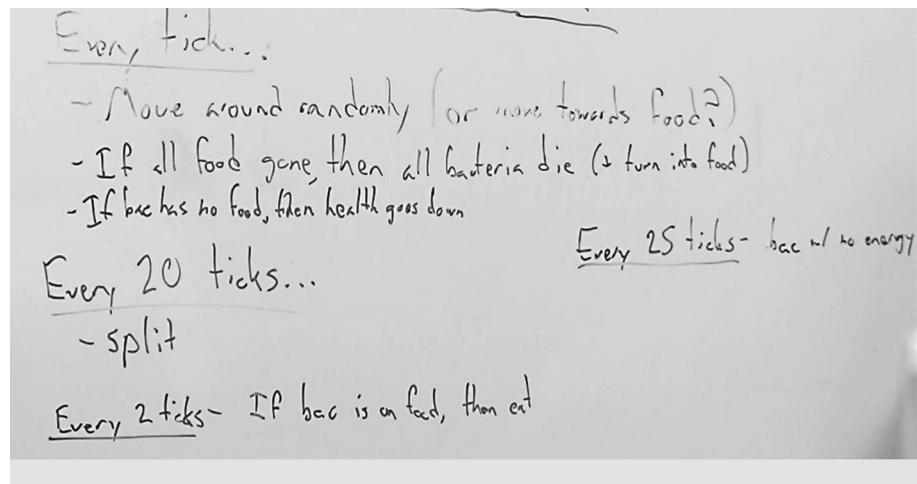 Every tick...
- Move around randomly (or move towards food?)
- If all food gone, then all bacteria die (& turn into food)
- If bac has no food, then health goes down
Every 25 ticks - bac w/ no energy
Every 20 ticks...
- split
Every 2 ticks - If bac is on food, then eat